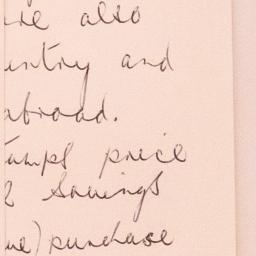 are also
untry and
abroad.
tamps price
& Savings
ue) purchase